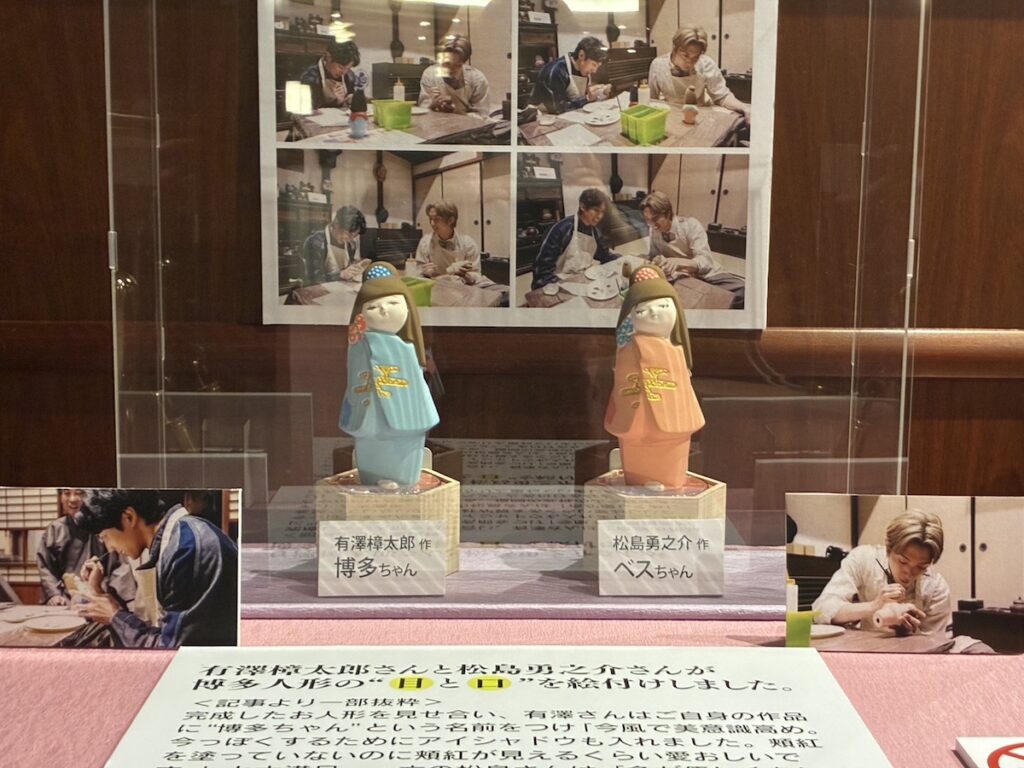 有澤樟太郎 作
博多ちゃん
松島勇之介 作
ベスちゃん
有澤樟太郎さんと松島勇之介さんが
博多人形の“目と口”を絵付けしました。
＜記事より一部抜粋＞
完成したお人形を見せ合い、有澤さんはご自身の作品
に“博多ちゃん”という名前をつけ「今風で美意識高め。
今っぽくするためにアイシャドウも入れました。頬紅
を塗っていないのに頬紅が見えるくらい愛おしいで